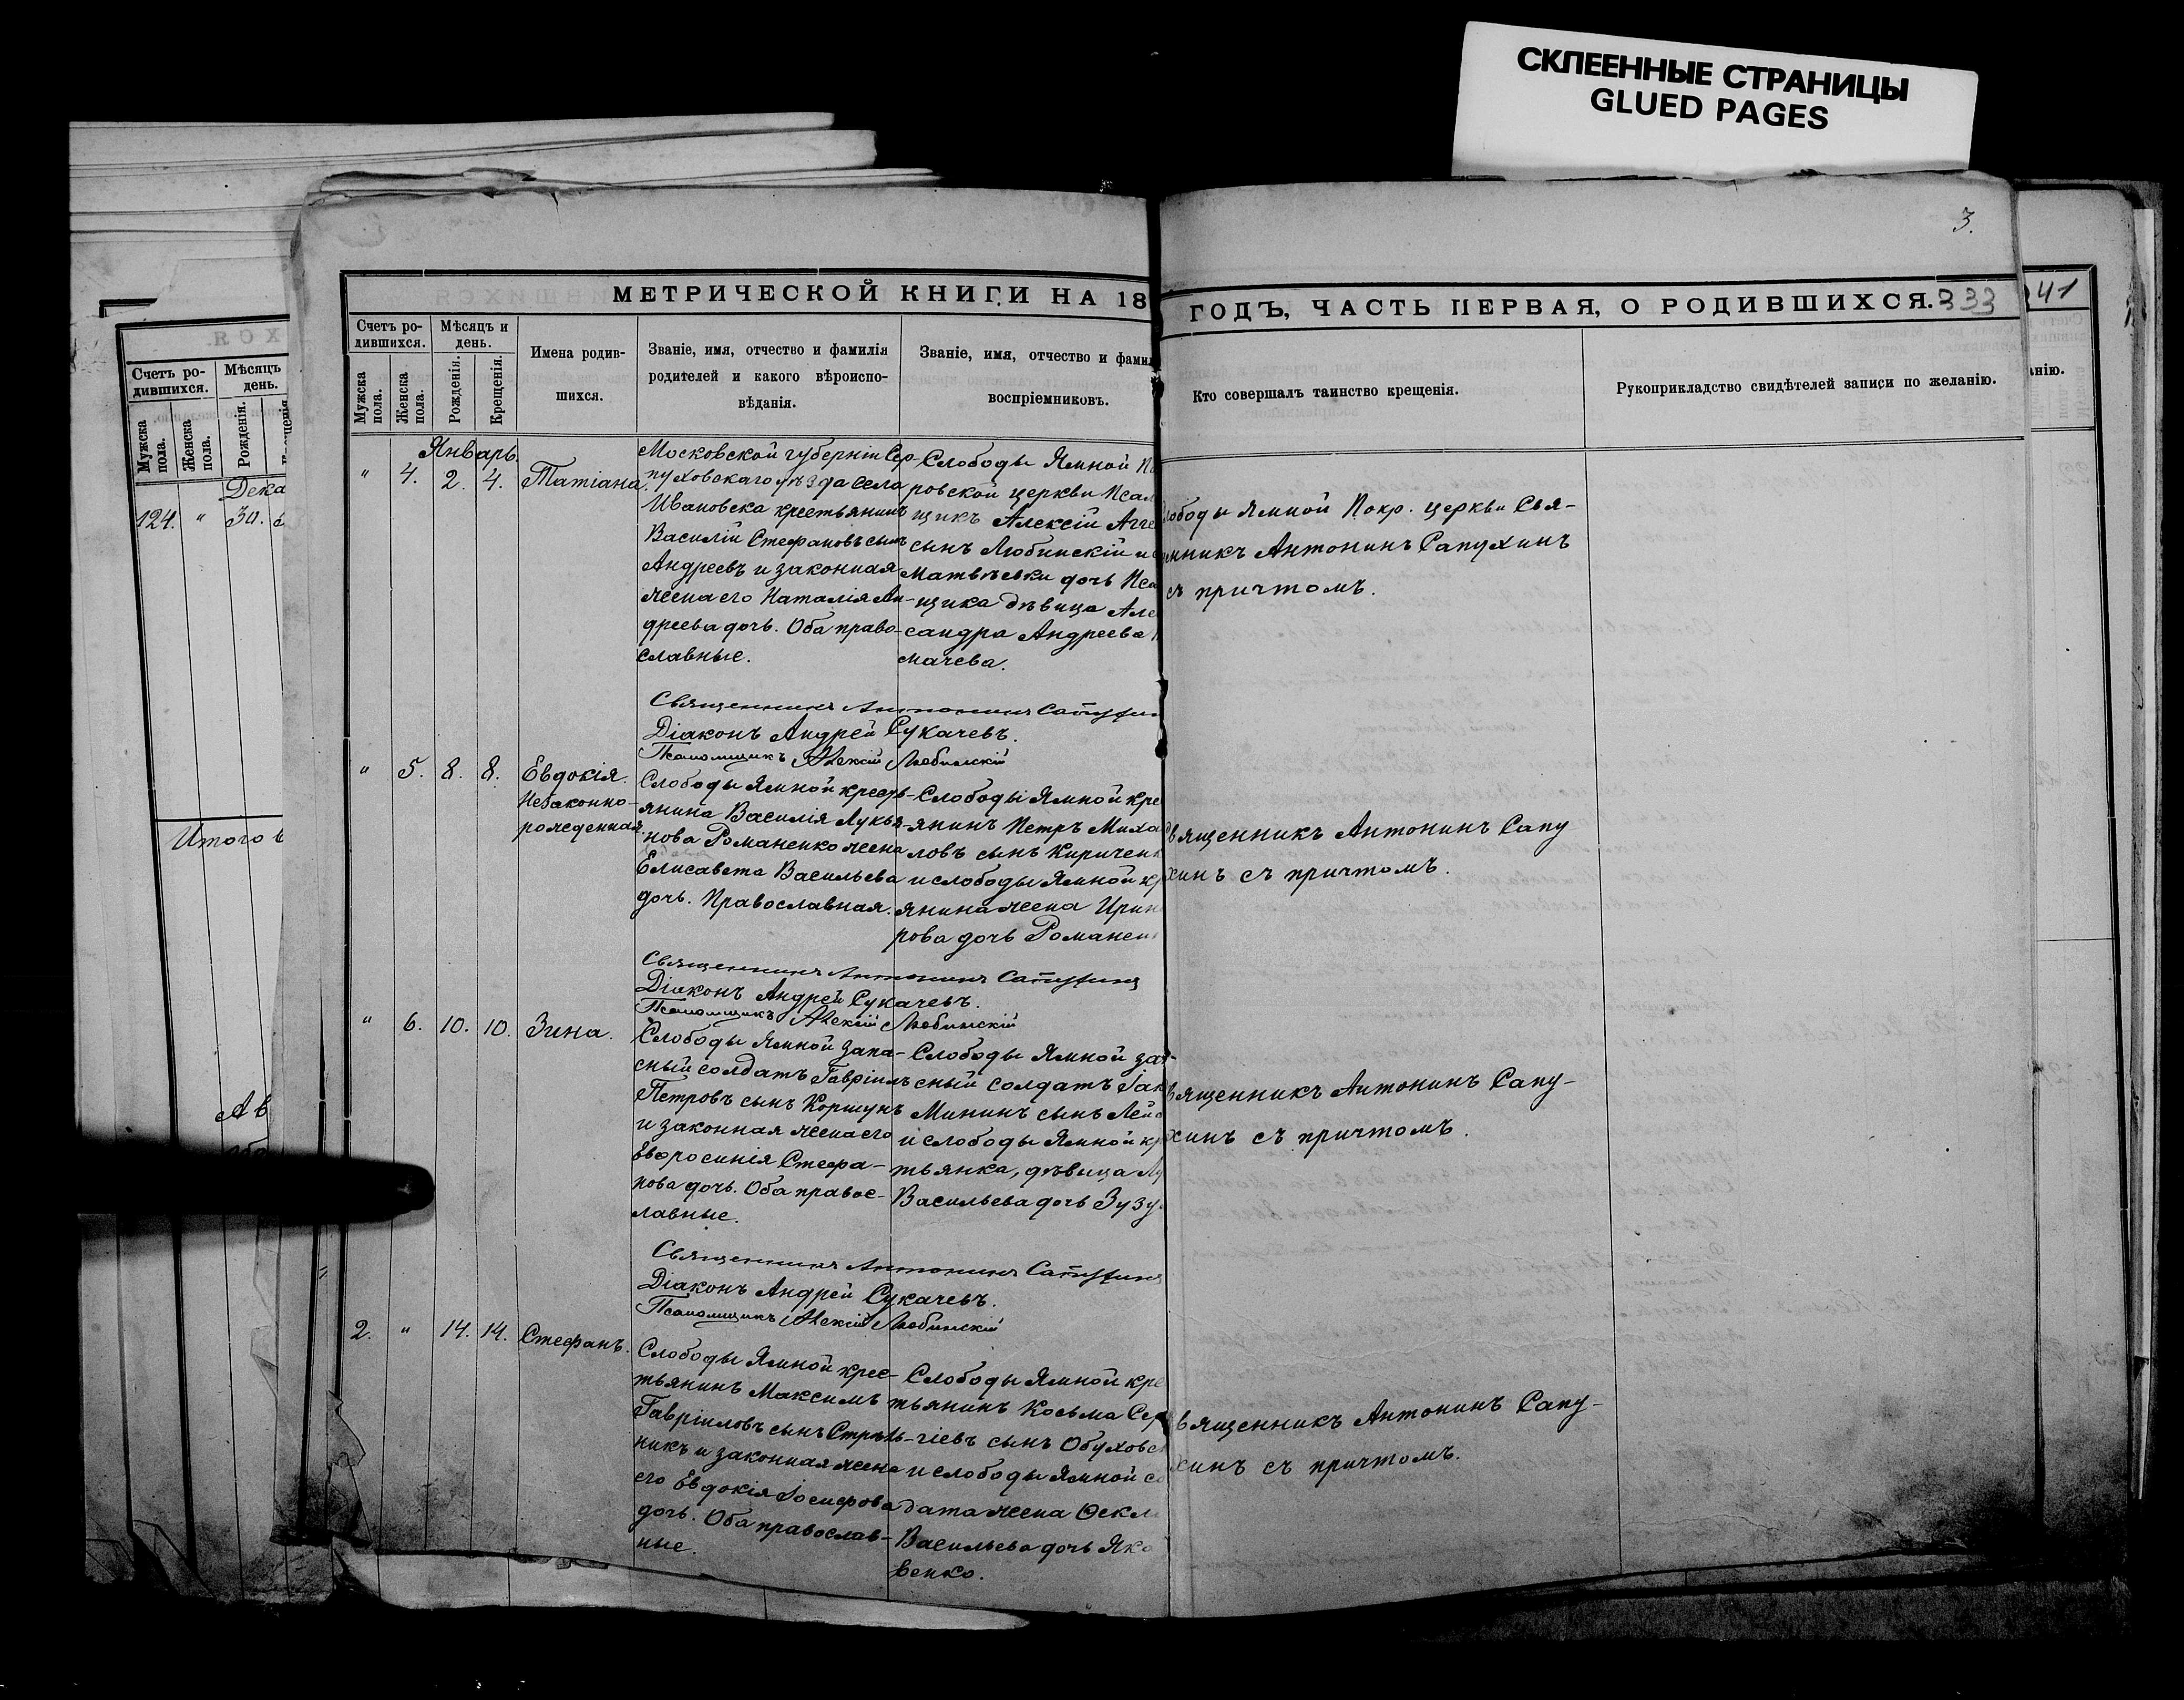 СКЛЕЕННЫЕ СТРАНИЦЫ
GLUED PAGES
3.
МЕТРИЧЕСКОЙ КНИГИ НА 18
ГОДЪ, ЧАСТЬ ПЕРВАЯ, О РОДИВШИХСЯ.
333
41
Счетъ ро-
дившихся.
Мѣсяцъ
день.
Мужска
пола.
Женска
пола.
Рожденія.
Дека
124. " 30.
Итого в
Ав
Счетъ ро-
дившихся.
Мѣсяцъ и
день.
Мужска
пола.
Женска
пола.
Рожденія.
Крещенія.
Имена родив-
шихся.
Званіе, имя, отчество и фамилія
родителей и какого вѣроиспо-
вѣданія.
Званіе, имя, отчество и фамил
воспріемниковъ.
Кто совершалъ таинство крещенія.
Рукоприкладство свидѣтелей записи по желанію.
нію.
Январь.
" 4. 2. 4. Татіана.
Московской губерніи Сер-
пуховскаго уѣзда села
Ивановска крестьянинъ
Василій Стефановъ сынъ
Андреевъ и законная
жена его Наталія Ан-
дреева дочь. Оба право-
славные.
Слободы Ямной П
ровской церкви Псал
щикъ Алексій Агге
сынъ Любинскій и
Матвѣевки дочь Пса
щика дѣвица Але
сандра Андреева
мачева.
лободы Ямной Покр. церкви Свя-
енникъ Антонинъ Сапухинъ
съ причтомъ.
Священникъ Антонинъ Сапухин
Діаконъ Андрей Сукачевъ.
Псаломщикъ Алексій Любинскій
" 5. 8. 8. Евдокія.
Незаконно-
рожденная.
Слободы Ямной кресть-
янина Василія Лукья-
нова Романенко жена
Елисавета Васильева
дочь. Православная.
Слободы Ямной кре
янинъ Петръ Миха
ловъ сынъ Кириченк
и слободы Ямной кр
янина жена Ирин
рова дочь Романен
вященникъ Антонинъ Сапу
хинъ съ причтомъ.
Священникъ Антонинъ Сапухинъ
Діаконъ Андрей Сукачевъ.
Псаломщикъ Алексій Любинскій
" 6. 10. 10. Зина.
Слободы Ямной запа-
сный солдатъ Гавріилъ
Петровъ сынъ Коршунъ
и законная жена его
Евфросинія Стефа-
нова дочь. Оба правос-
лавные.
Слободы Ямной зап
сный солдатъ Іак
Мининъ сынъ Лей
и слободы Ямной кр
тьянка, дѣвица
Васильева дочь Зузу
вященникъ Антонинъ Сапу-
хинъ съ причтомъ.
Священникъ Антонинъ Сапухинъ
Діаконъ Андрей Сукачевъ.
Псаломщикъ Алексій Любинскій
2. " 14. 14. Стефанъ.
Слободы Ямной крес-
тьянинъ Максимъ
Гавріиловъ сынъ Стрѣль-
никъ и законная жена
его Евдокія Іосифова
дочь. Оба православ-
ные.
Слободы Ямной кре
тьянинъ Косьма Сер
гіевъ сынъ Обуховс
и слободы Ямной со
дата жена Ѳекл
Васильева дочь Яко
венко.
вященникъ Антонинъ Сапу-
хинъ съ причтомъ.